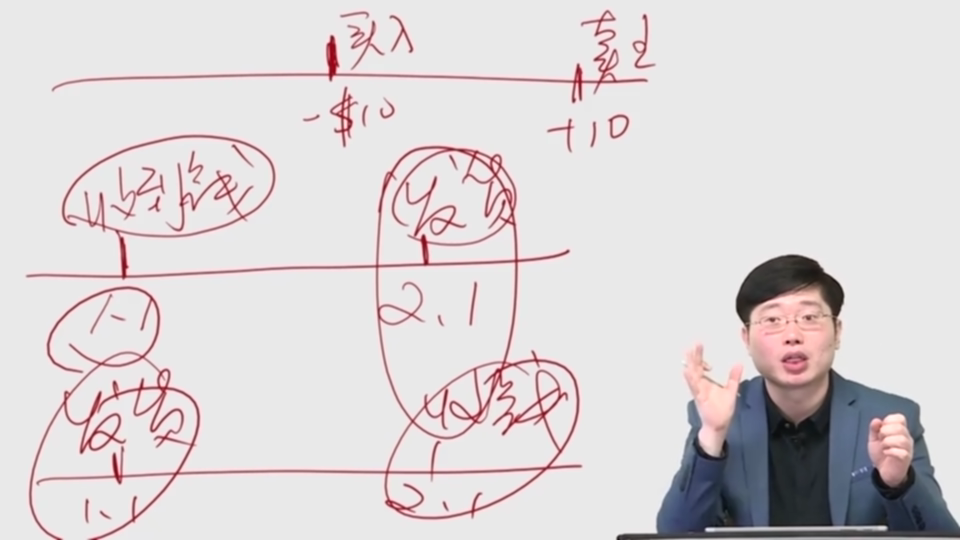 买入
卖出
-$10
+10
收到钱
发货
1.1
2.1
发货
收钱
1.1
2.1